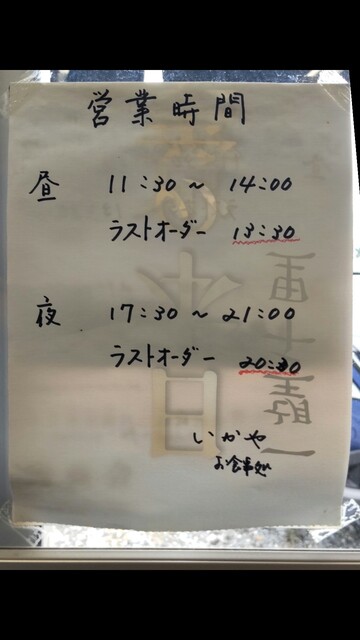 営業時間
昼 11:30～14:00
ラストオーダー 13:30
夜 17:30～21:00
ラストオーダー 20:30
いかや
お食事処